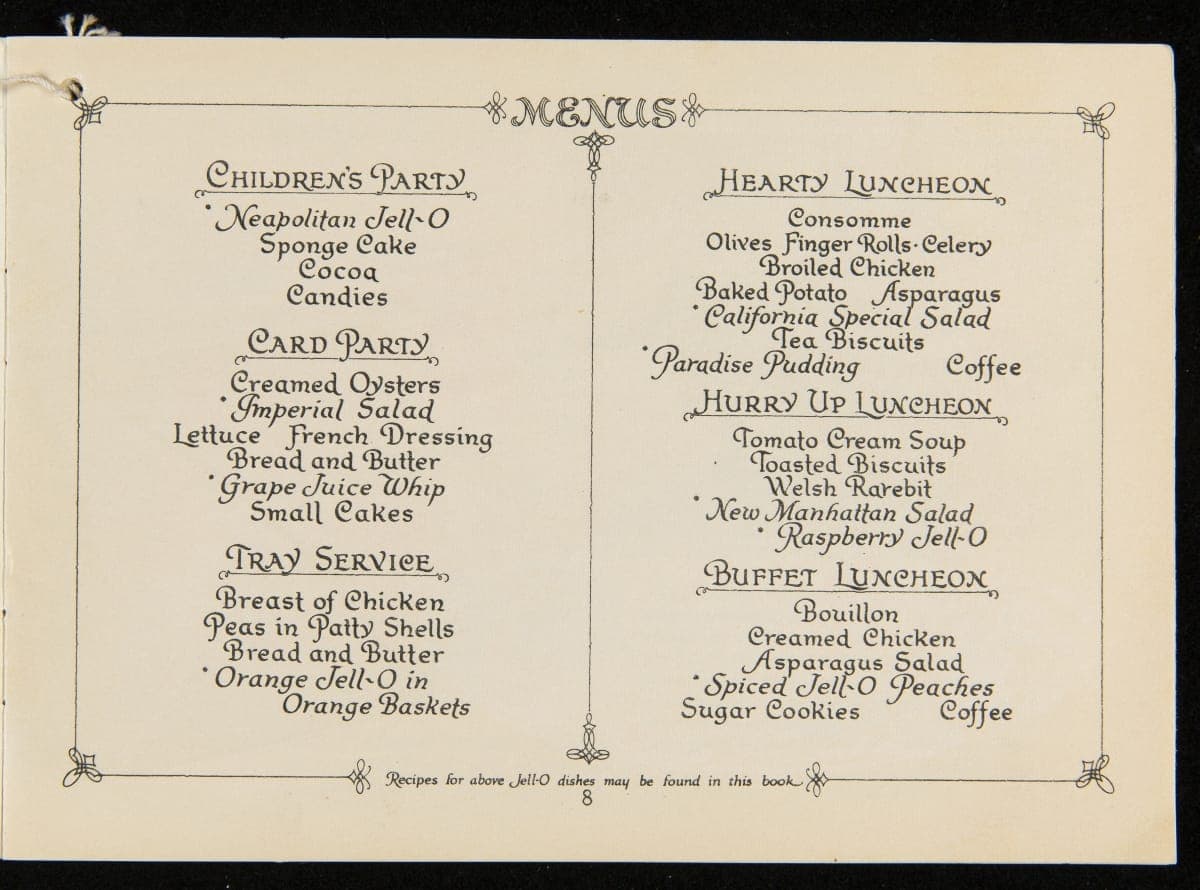 MENUS
CHILDREN'S PARTY
• Neapolitan Jell-O
Sponge Cake
Cocoa
Candies
CARD PARTY
Creamed Oysters
• Imperial Salad
Lettuce French Dressing
Bread and Butter
• Grape Juice Whip
Small Cakes
TRAY SERVICE
Breast of Chicken
Peas in Patty Shells
Bread and Butter
• Orange Jell-O in
Orange Baskets
HEARTY LUNCHEON
Consomme
Olives Finger Rolls · Celery
Broiled Chicken
Baked Potato Asparagus
• California Special Salad
Tea Biscuits
• Paradise Pudding Coffee
HURRY UP LUNCHEON
Tomato Cream Soup
Toasted Biscuits
Welsh Rarebit
• New Manhattan Salad
• Raspberry Jell-O
BUFFET LUNCHEON
Bouillon
Creamed Chicken
Asparagus Salad
• Spiced Jell-O Peaches
Sugar Cookies Coffee
Recipes for above Jell-O dishes may be found in this book
8